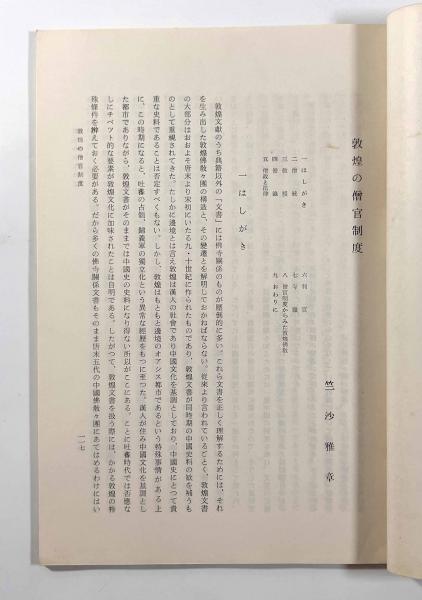 敦煌の僧官制度
竺沙雅章
一 はしがき
二 僧統
三 教授
四 僧錄
五 僧政と法律
六 判官
七 寺職
八 僧官制度からみた敦煌佛敎
九 おわりに
一 はしがき
敦煌文献のうち典籍以外の「文書」には佛寺關係のものが壓倒的に多い。これら文書を正しく理解するためには、それ
を生み出した敦煌佛敎々團の構造と、その變遷とを解明しておかねばならない。從來より言われているごとく、敦煌文書
の大部分はおおよそ唐末より宋初にいたる九・十世紀に作られたものであり、敦煌文書が同時期の中國史料の缺を補うも
のとして重視されてきた。たしかに邊境とは言え敦煌は漢人の社會であり中國文化を基調としており、中國史にとつて貴
重な史料であることは否定すべくもない。しかし、敦煌はもともと邊境のオアシス都市であるという特殊事情がある上
に、この時期になると、吐蕃の占領、歸義軍の獨立化という異常な經歷をもつに至つた。漢人が住み中國文化を基調とし
た都市でありながら、敦煌文書がそのままでは中國史の史料になり得ない所以がここにある。ことに吐蕃時代では否應な
しにチベット的な要素が敦煌文化に加味されたことは自明である。したがつて、敦煌文書を扱う際には、かかる敦煌の特
殊條件を辨えておく必要がある。だから多くの佛寺關係文書もそのまま唐末五代の中國佛敎々團にあてはめるわけにはい
敦煌の僧官制度
一一七